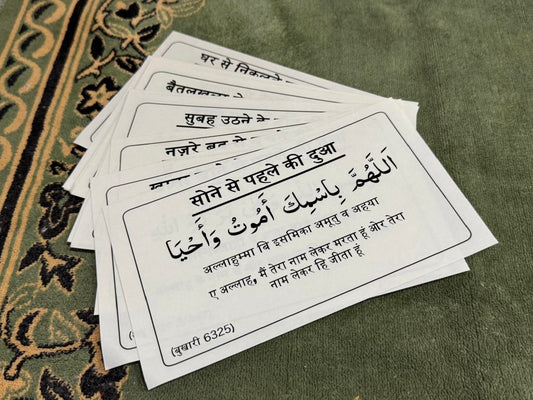 घर से निकलने
बैतलखला
सुबह उठने के
नज़रे बद से
सोने से पहले की दुआ
اَللّٰهُمَّ بِاسْمِكَ أَمُوْتُ وَأَحْيَا
अल्लाहुम्मा बि इसमिका अमूतु व अहया
ए अल्लाह, मैं तेरा नाम लेकर मरता हूं और तेरा
नाम लेकर हि जीता हूं
(बुखारी 6325)